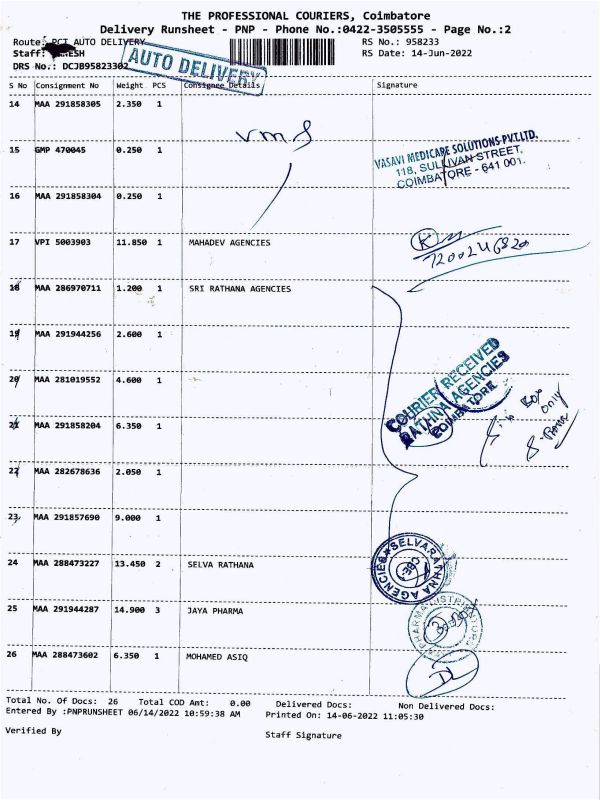 THE PROFESSIONAL COURIERS, Coimbatore
Delivery Runsheet - PNP - Phone No.:0422-3505555 - Page No.:2
Route: PCT AUTO DELIVERY RS No.: 958233
Staff: RS Date: 14-Jun-2022
DRS No.: DCJB95823302
AUTO DELIVERY
S No Consignment No Weight PCS Consignee Details Signature
14 MAA 291858305 2.350 1
vms
15 GMP 470045 0.250 1
VASAVI MEDICARE SOLUTIONS PVT.LTD.
118, SULLIVAN STREET,
COIMBATORE - 641 001.
16 MAA 291858304 0.250 1
17 VPI 5003903 11.850 1 MAHADEV AGENCIES
K
18 MAA 286970711 1.200 1 SRI RATHANA AGENCIES
19 MAA 291944256 2.600 1
20 MAA 281019552 4.600 1
COURIER RECEIVED
RATHNA AGENCIES
COIMBATORE
Box only
21 MAA 291858204 6.350 1
22 MAA 282678636 2.050 1
23 MAA 291857690 9.000 1
24 MAA 288473227 13.450 2 SELVA RATHANA
SELVARATHNA AGENCIES
CBE
25 MAA 291944287 14.900 3 JAYA PHARMA
PHARMA DISTRIBUTORS
26 MAA 288473602 6.350 1 MOHAMED ASIQ
Total No. Of Docs: 26 Total COD Amt: 0.00 Delivered Docs: Non Delivered Docs:
Entered By :PNPRUNSHEET 06/14/2022 10:59:38 AM Printed On: 14-06-2022 11:05:30
Verified By Staff Signature